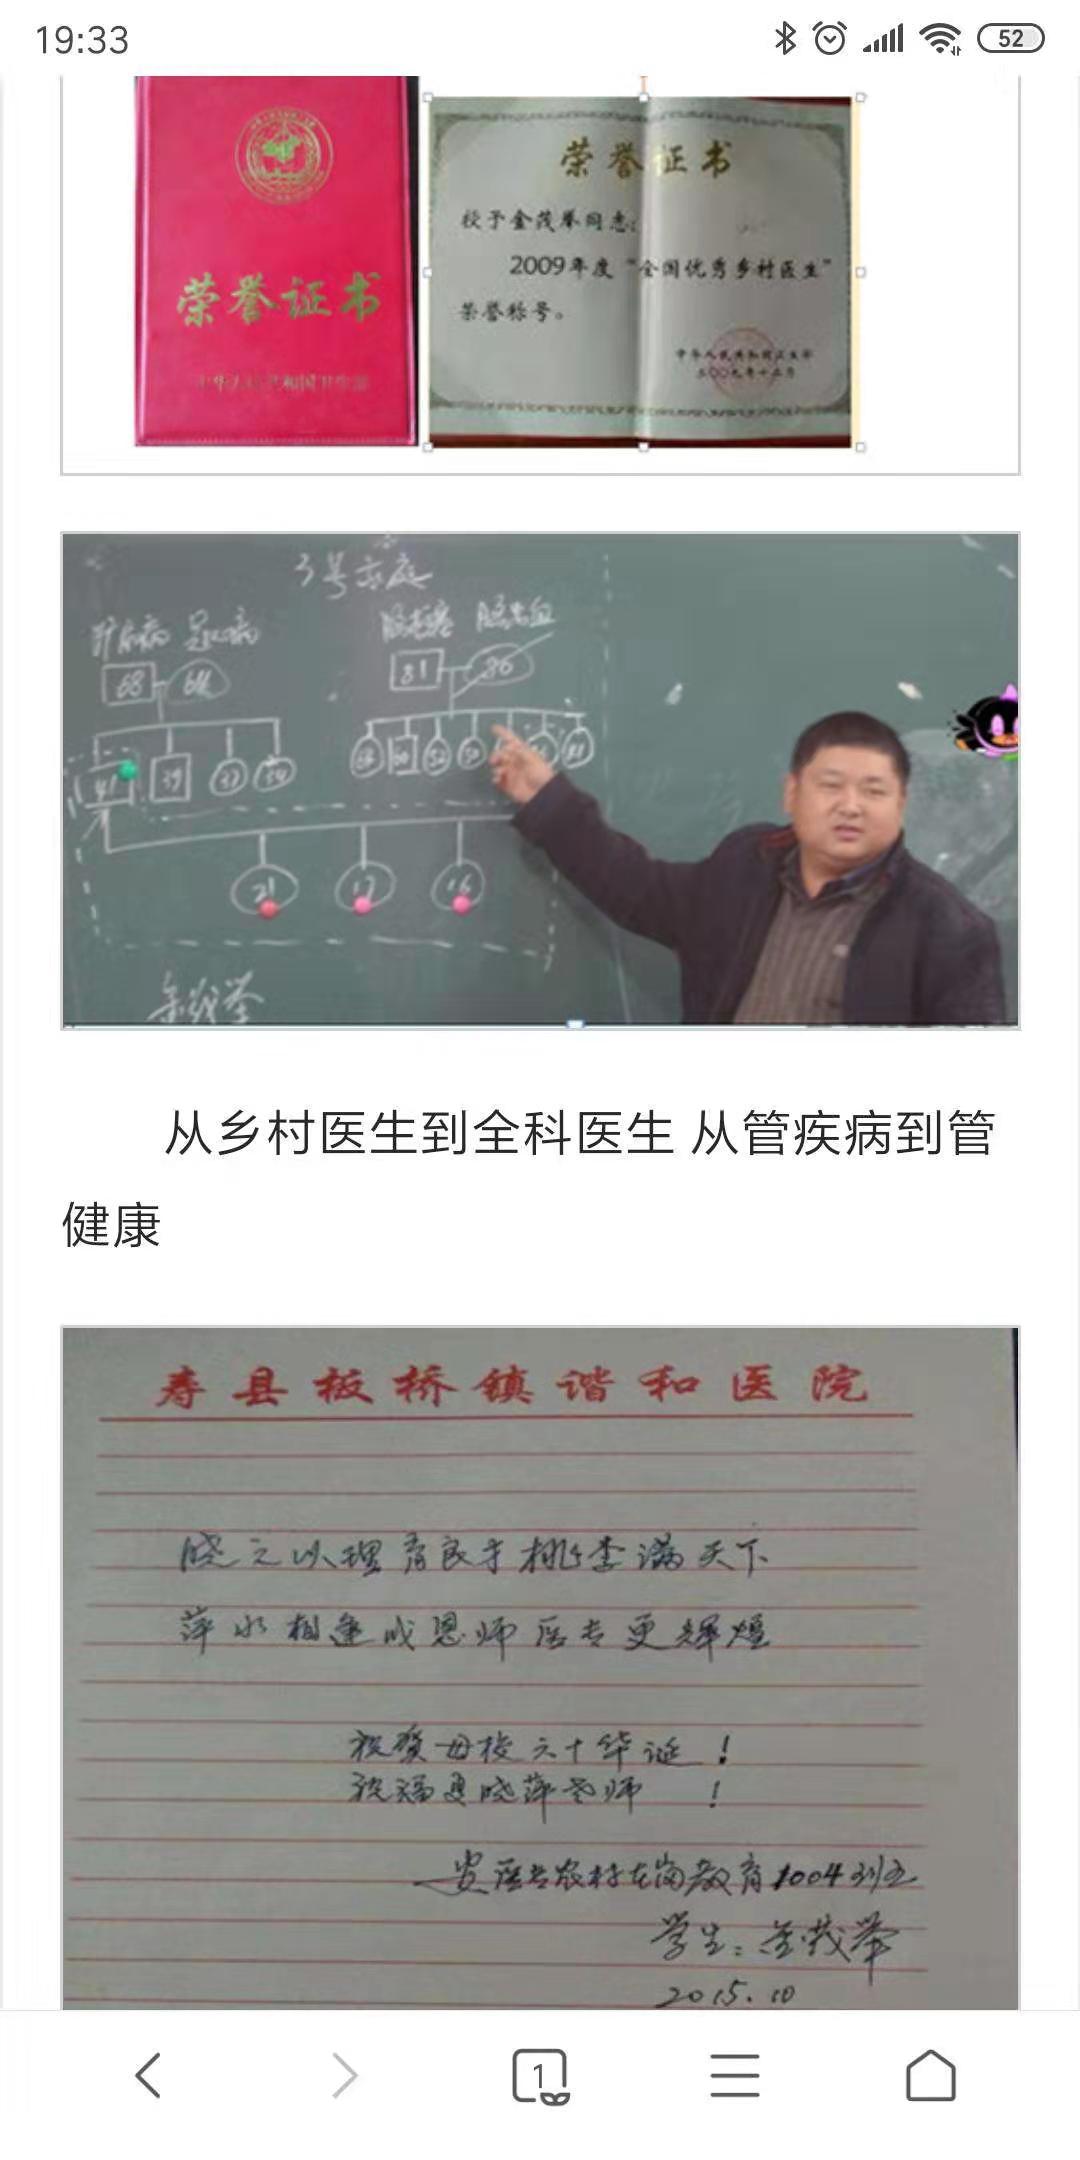 19:33
52
荣誉证书
中华人民共和国卫生部
荣誉证书
授予金茂举同志：
2009年度“全国优秀乡村医生”
荣誉称号。
中华人民共和国卫生部
二〇〇九年十二月
3号家庭
冠心病
脑出血
68
64
81
86
41
39
37
21
17
16
金茂举
从乡村医生到全科医生 从管疾病到管
健康
寿县板桥镇谐和医院
晓之以理育良才桃李满天下
萍水相逢成恩师医专更辉煌
祝贺母校六十华诞！
祝福夏晓萍老师！
安医专农村在岗教育1004班
学生：金茂举
2015.10
1